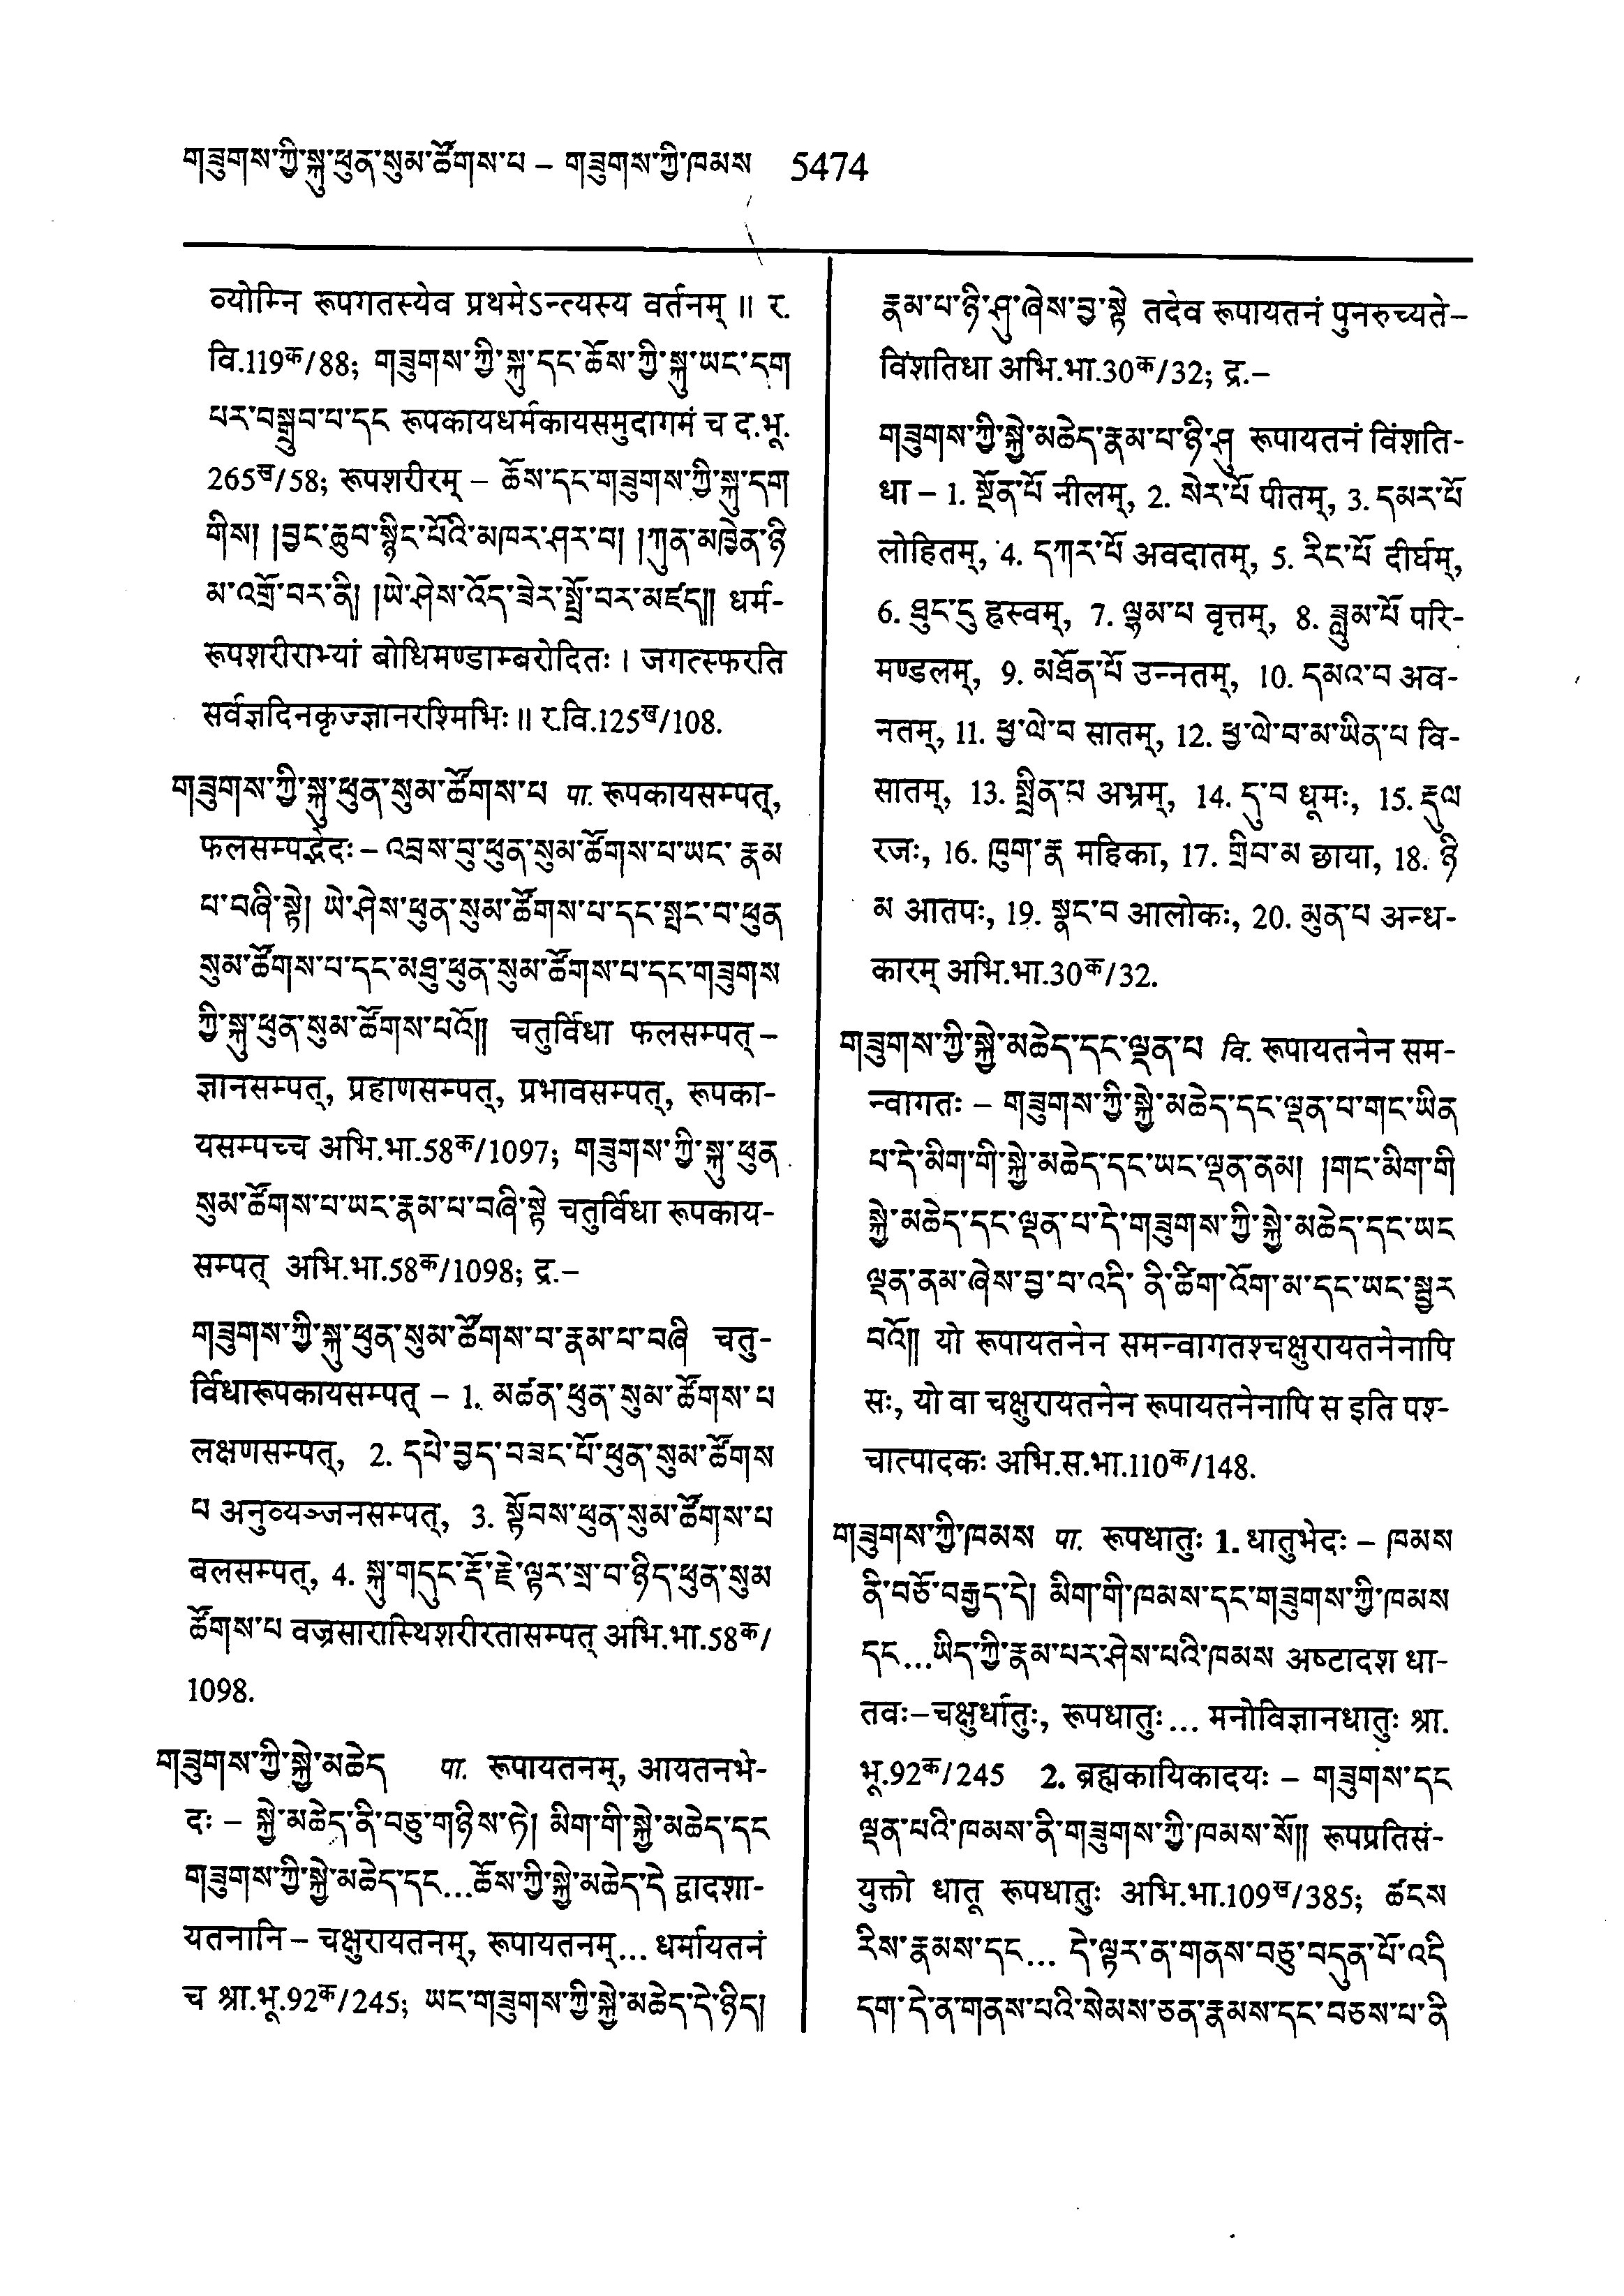 གཟུགས་ཀྱི་སྐུ་ཕུན་སུམ་ཚོགས་པ – གཟུགས་ཀྱི་ཁམས 5474
व्योम्नि रूपगतस्येव प्रथमेऽन्त्यस्य वर्तनम् ॥ र.
वि.119क/88; གཟུགས་ཀྱི་སྐུ་དང་ཆོས་ཀྱི་སྐུ་ཡང་དག
པར་བསྒྲུབ་པ་དང रूपकायधर्मकायसमुदागमं च द.भू.
265ख/58; रूपशरीरम् – ཆོས་དང་གཟུགས་ཀྱི་སྐུ་དག
གིས། །བྱང་ཆུབ་སྙིང་པོའི་མཁར་ཤར་བ། །ཀུན་མཁྱེན་ཉི
མ་འགྲོ་བར་ནི། །ཡེ་ཤེས་འོད་ཟེར་སྤྲོ་བར་མཛད།། धर्म-
रूपशरीराभ्यां बोधिमण्डाम्बरोदितः । जगत्स्फरति
सर्वज्ञदिनकृज्ज्ञानरश्मिभिः ॥ र.वि.125ख/108.
གཟུགས་ཀྱི་སྐུ་ཕུན་སུམ་ཚོགས་པ पा. रूपकायसम्पत्,
फलसम्पद्भेदः – འབྲས་བུ་ཕུན་སུམ་ཚོགས་པ་ཡང་ རྣམ
པ་བཞི་སྟེ། ཡེ་ཤེས་ཕུན་སུམ་ཚོགས་པ་དང་སྤང་བ་ཕུན
སུམ་ཚོགས་པ་དང་མཐུ་ཕུན་སུམ་ཚོགས་པ་དང་གཟུགས
ཀྱི་སྐུ་ཕུན་སུམ་ཚོགས་པའོ།། चतुर्विधा फलसम्पत् –
ज्ञानसम्पत्, प्रहाणसम्पत्, प्रभावसम्पत्, रूपका-
यसम्पच्च अभि.भा.58क/1097; གཟུགས་ཀྱི་སྐུ་ཕུན
སུམ་ཚོགས་པ་ཡང་རྣམ་པ་བཞི་སྟེ चतुर्विधा रूपकाय-
सम्पत् अभि.भा.58क/1098; द्र.–
གཟུགས་ཀྱི་སྐུ་ཕུན་སུམ་ཚོགས་པ་རྣམ་པ་བཞི चतु-
र्विधारूपकायसम्पत् – 1. མཚན་ཕུན་སུམ་ཚོགས་པ
लक्षणसम्पत्, 2. དཔེ་བྱད་བཟང་པོ་ཕུན་སུམ་ཚོགས
པ अनुव्यञ्जनसम्पत्, 3. སྟོབས་ཕུན་སུམ་ཚོགས་པ
बलसम्पत्, 4. སྐུ་གདུང་རྡོ་རྗེ་ལྟར་སྲ་བ་ཉིད་ཕུན་སུམ
ཚོགས་པ वज्रसारास्थिशरीरतासम्पत् अभि.भा.58क/
1098.
གཟུགས་ཀྱི་སྐྱེ་མཆེད पा. रूपायतनम्, आयतनभे-
दः – སྐྱེ་མཆེད་ནི་བཅུ་གཉིས་ཏེ། མིག་གི་སྐྱེ་མཆེད་དང
གཟུགས་ཀྱི་སྐྱེ་མཆེད་དང...ཆོས་ཀྱི་སྐྱེ་མཆེད་དེ द्वादशा-
यतनानि – चक्षुरायतनम्, रूपायतनम्... धर्मायतनं
च श्रा.भू.92क/245; ཡང་གཟུགས་ཀྱི་སྐྱེ་མཆེད་དེ་ཉིད།
རྣམ་པ་ཉི་ཤུ་ཞེས་བྱ་སྟེ तदेव रूपायतनं पुनरुच्यते–
विंशतिधा अभि.भा.30क/32; द्र.–
གཟུགས་ཀྱི་སྐྱེ་མཆེད་རྣམ་པ་ཉི་ཤུ रूपायतनं विंशति-
धा – 1. སྔོན་པོ नीलम्, 2. སེར་པོ पीतम्, 3. དམར་པོ
लोहितम्, 4. དཀར་པོ अवदातम्, 5. རིང་པོ दीर्घम्,
6. ཐུང་དུ ह्रस्वम्, 7. ལྷམ་པ वृत्तम्, 8. ཟླུམ་པོ परि-
मण्डलम्, 9. མཐོན་པོ उन्नतम्, 10. དམའ་བ अव-
नतम्, 11. ཕྱ་ལེ་བ सातम्, 12. ཕྱ་ལེ་བ་མ་ཡིན་པ वि-
सातम्, 13. སྤྲིན་པ अभ्रम्, 14. དུ་བ धूमः, 15. རྡུལ
रजः, 16. ཁུག་རྣ महिका, 17. གྲིབ་མ छाया, 18. ཉི
མ आतपः, 19. སྣང་བ आलोकः, 20. མུན་པ अन्ध-
कारम् अभि.भा.30क/32.
གཟུགས་ཀྱི་སྐྱེ་མཆེད་དང་ལྡན་པ वि. रूपायतनेन सम-
न्वागतः – གཟུགས་ཀྱི་སྐྱེ་མཆེད་དང་ལྡན་པ་གང་ཡིན
པ་དེ་མིག་གི་སྐྱེ་མཆེད་དང་ཡང་ལྡན་ནམ། །གང་མིག་གི
སྐྱེ་མཆེད་དང་ལྡན་པ་དེ་གཟུགས་ཀྱི་སྐྱེ་མཆེད་དང་ཡང
ལྡན་ནམ་ཞེས་བྱ་བ་འདི་ ནི་ཚིག་འོག་མ་དང་ཡང་སྦྱར
བའོ།། यो रूपायतनेन समन्वागतश्चक्षुरायतनेनापि
सः, यो वा चक्षुरायतनेन रूपायतनेनापि स इति पश्-
चात्पादकः अभि.स.भा.110क/148.
གཟུགས་ཀྱི་ཁམས पा. रूपधातुः 1. धातुभेदः – ཁམས
ནི་བཅོ་བརྒྱད་དེ། མིག་གི་ཁམས་དང་གཟུགས་ཀྱི་ཁམས
དང...ཡིད་ཀྱི་རྣམ་པར་ཤེས་པའི་ཁམས अष्टादश धा-
तवः–चक्षुर्धातुः, रूपधातुः... मनोविज्ञानधातुः श्रा.
भू.92क/245 2. ब्रह्मकायिकादयः – གཟུགས་དང
ལྡན་པའི་ཁམས་ནི་གཟུགས་ཀྱི་ཁམས་སོ།། रूपप्रतिसं-
युक्तो धातू रूपधातुः अभि.भा.109ख/385; ཚངས
རིས་རྣམས་དང... དེ་ལྟར་ན་གནས་བཅུ་བདུན་པོ་འདི
དག་དེ་ན་གནས་པའི་སེམས་ཅན་རྣམས་དང་བཅས་པ་ནི